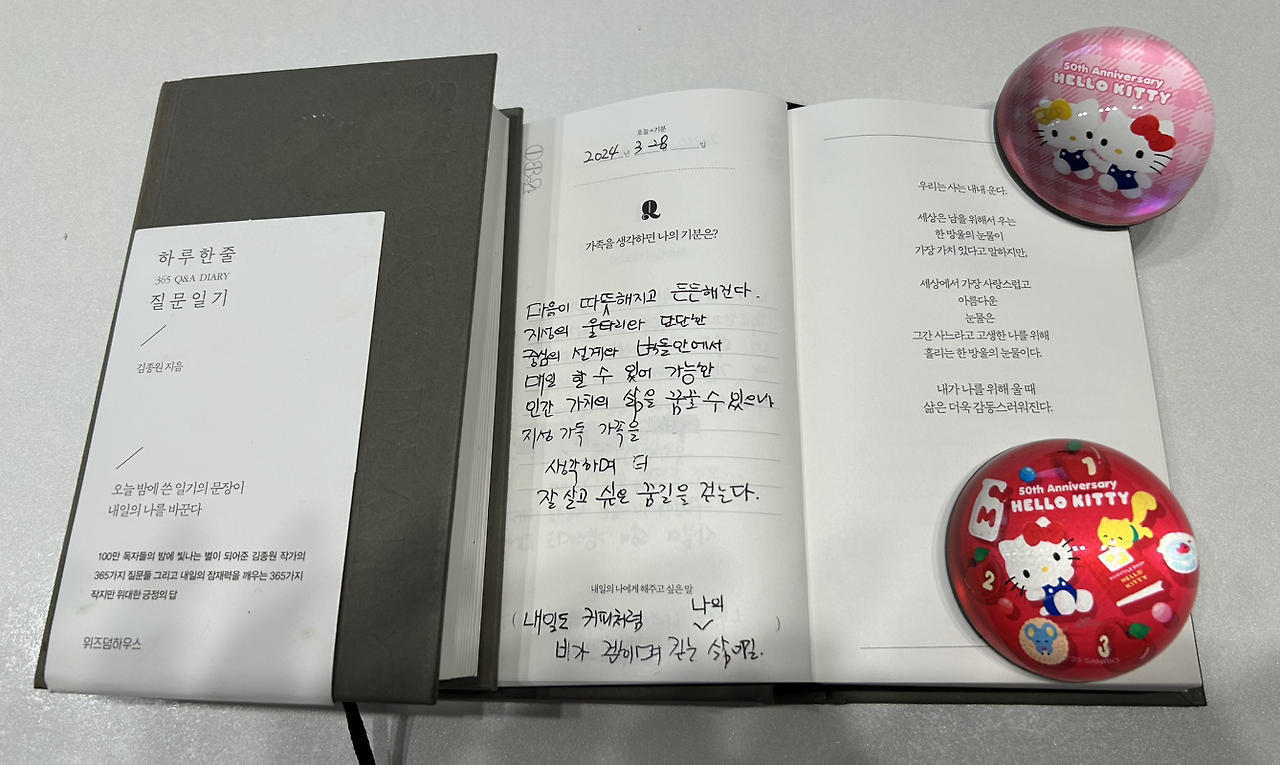 하루 한 줄
365 Q&A DIARY
질문 일기
김종원 지음
오늘 밤에 쓴 일기의 문장이
내일의 나를 바꾼다
100만 독자들의 밤에 빛나는 별이 되어준 김종원 작가의
365가지 질문들 그리고 내일의 잠재력을 깨우는 365가지
작지만 위대한 긍정의 답
위즈덤하우스
오늘×기분
2024 년 3-28 일
Q
가족을 생각하면 나의 기분은?
마음이 따뜻해지고 든든해진다.
지성의 울타리와 단단한
중심의 설계와 벽돌안에서
매일 할 수 있어 가능한
인간 가치의 삶을 꿈꿀 수 있으니
지성 가득 가족을
생각하며 더
잘 살고 싶은 꿈길을 걷는다.
내일의 나에게 해주고 싶은 말
( 내일도 커피처럼 나의 )
비가 길는 삶
우리는 사는 내내 운다.
세상은 남을 위해서 우는
한 방울의 눈물이
가장 가치 있다고 말하지만,
세상에서 가장 사랑스럽고
아름다운
눈물은
그간 사느라고 고생한 나를 위해
흘리는 한 방울의 눈물이다.
내가 나를 위해 울 때
삶은 더욱 감동스러워진다.
50th Anniversary
HELLO KITTY
50th Anniversary
HELLO KITTY
1
2
3
HELLO
KITTY
SANRIO